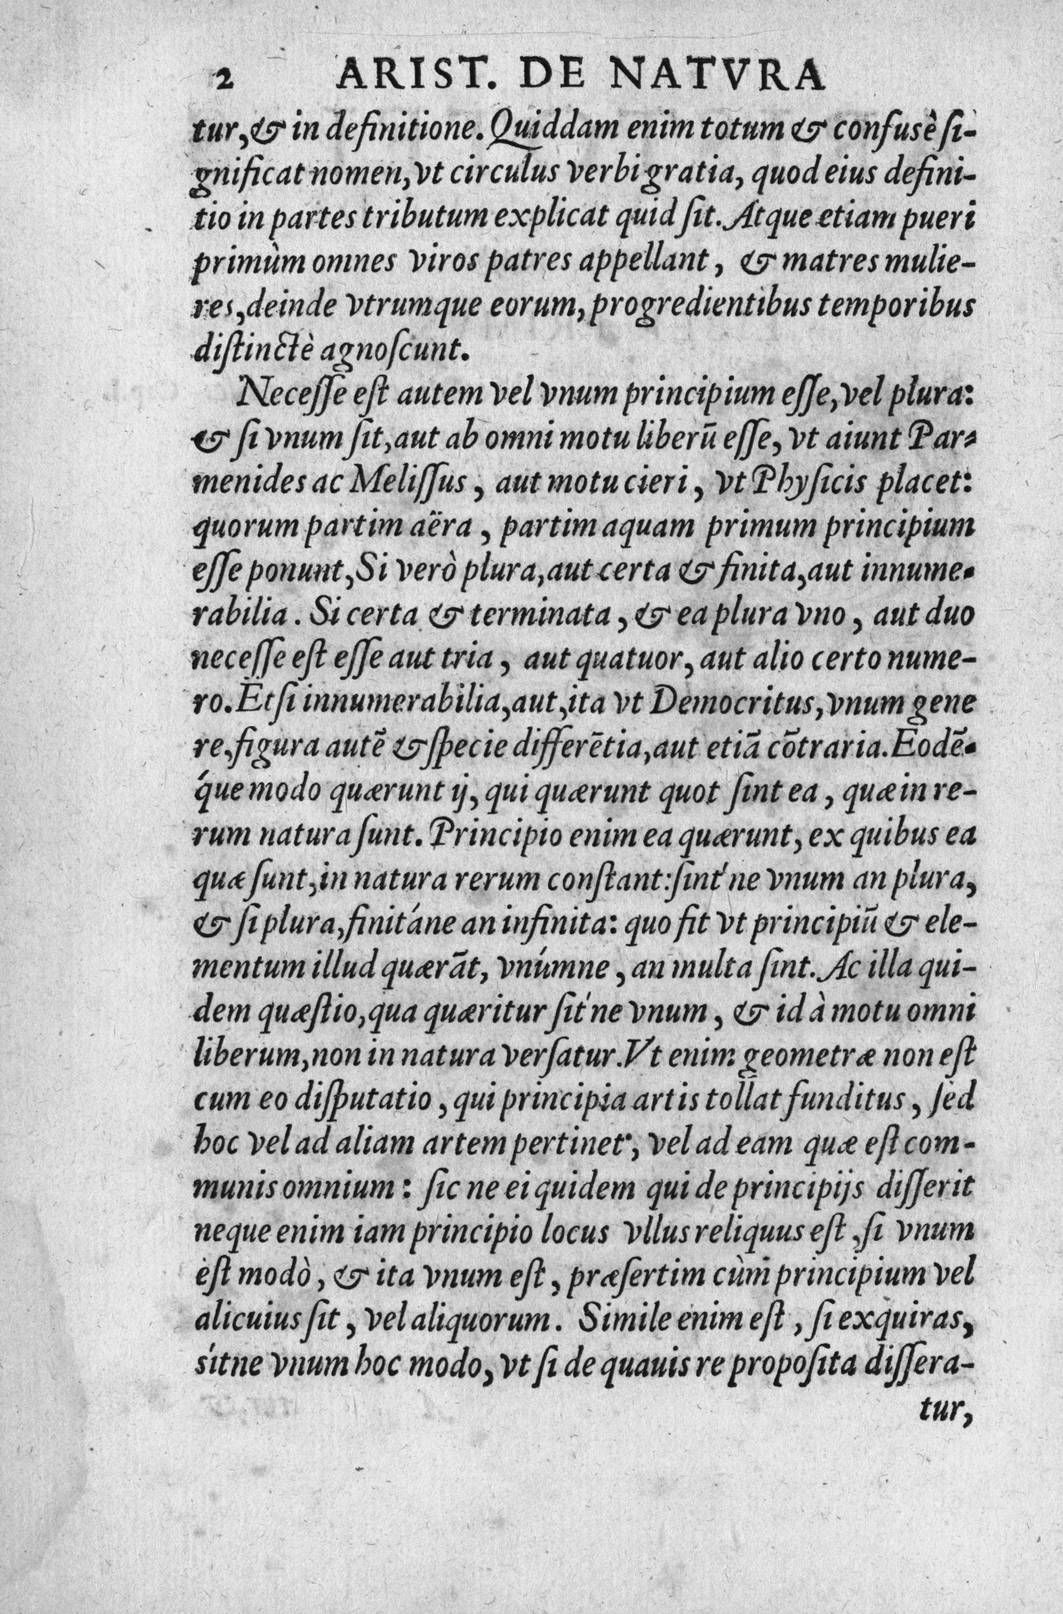 2 ARIST. DE NATVRA
tur, & in definitione. Quiddam enim totum & confusè si-
gnificat nomen, vt circulus verbi gratia, quod eius defini-
tio in partes tributum explicat quid sit. Atque etiam pueri
primùm omnes viros patres appellant, & matres mulie-
res, deinde vtrumque eorum, progredientibus temporibus
distinctè agnoscunt.
Necesse est autem vel vnum principium esse, vel plura:
& si vnum sit, aut ab omni motu liberū esse, vt aiunt Par-
menides ac Melissus, aut motu cieri, vt Physicis placet:
quorum partim aëra, partim aquam primum principium
esse ponunt, Si verò plura, aut certa & finita, aut innume-
rabilia. Si certa & terminata, & ea plura vno, aut duo
necesse est esse aut tria, aut quatuor, aut alio certo nume-
ro. Et si innumerabilia, aut, ita vt Democritus, vnum gene
re, figura autē & specie differētia, aut etiā cōtraria. Eodē-
q́ue modo quærunt ij, qui quærunt quot sint ea, quæ in re-
rum natura sunt. Principio enim ea quærunt, ex quibus ea
quæ sunt, in natura rerum constant: sint'ne vnum an plura,
& si plura, finitáne an infinita: quo fit vt principiū & ele-
mentum illud quærāt, vnúmne, an multa sint. Ac illa qui-
dem quæstio, qua quæritur sit'ne vnum, & id à motu omni
liberum, non in natura versatur. Vt enim geometræ non est
cum eo disputatio, qui principia artis tollat funditus, sed
hoc vel ad aliam artem pertinet, vel ad eam quæ est com-
munis omnium: sic ne ei quidem qui de principijs disserit
neque enim iam principio locus vllus reliquus est, si vnum
est modò, & ita vnum est, præsertim cùm principium vel
alicuius sit, vel aliquorum. Simile enim est, si exquiras,
sítne vnum hoc modo, vt si de quauis re proposita dissera-
tur,